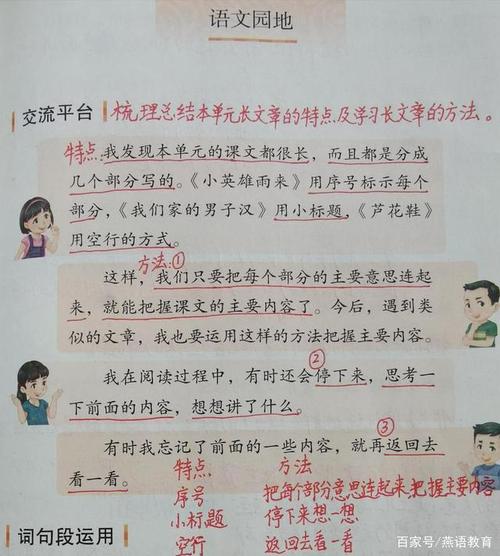 语文园地
交流平台 梳理总结本单元长文章的特点及学习长文章的方法。
特点:我发现本单元的课文都很长,而且都是分成
几个部分写的。《小英雄雨来》用序号标示每个
部分,《我们家的男子汉》用小标题,《芦花鞋》
用空行的方式。
方法:①
这样,我们只要把每个部分的主要意思连起
来,就能把握课文的主要内容了。今后,遇到类
似的文章,我也要运用这样的方法把握主要内容。
②
我在阅读过程中,有时还会停下来,思考一
下前面的内容,想想讲了什么。
③
有时我忘记了前面的一些内容,就再返回去
看一看。
特点 方法
序号 把每个部分意思连起来,把握主要内容
小标题 停下来想一想
空行 返回去看一看
词句段运用
百家号/燕语教育